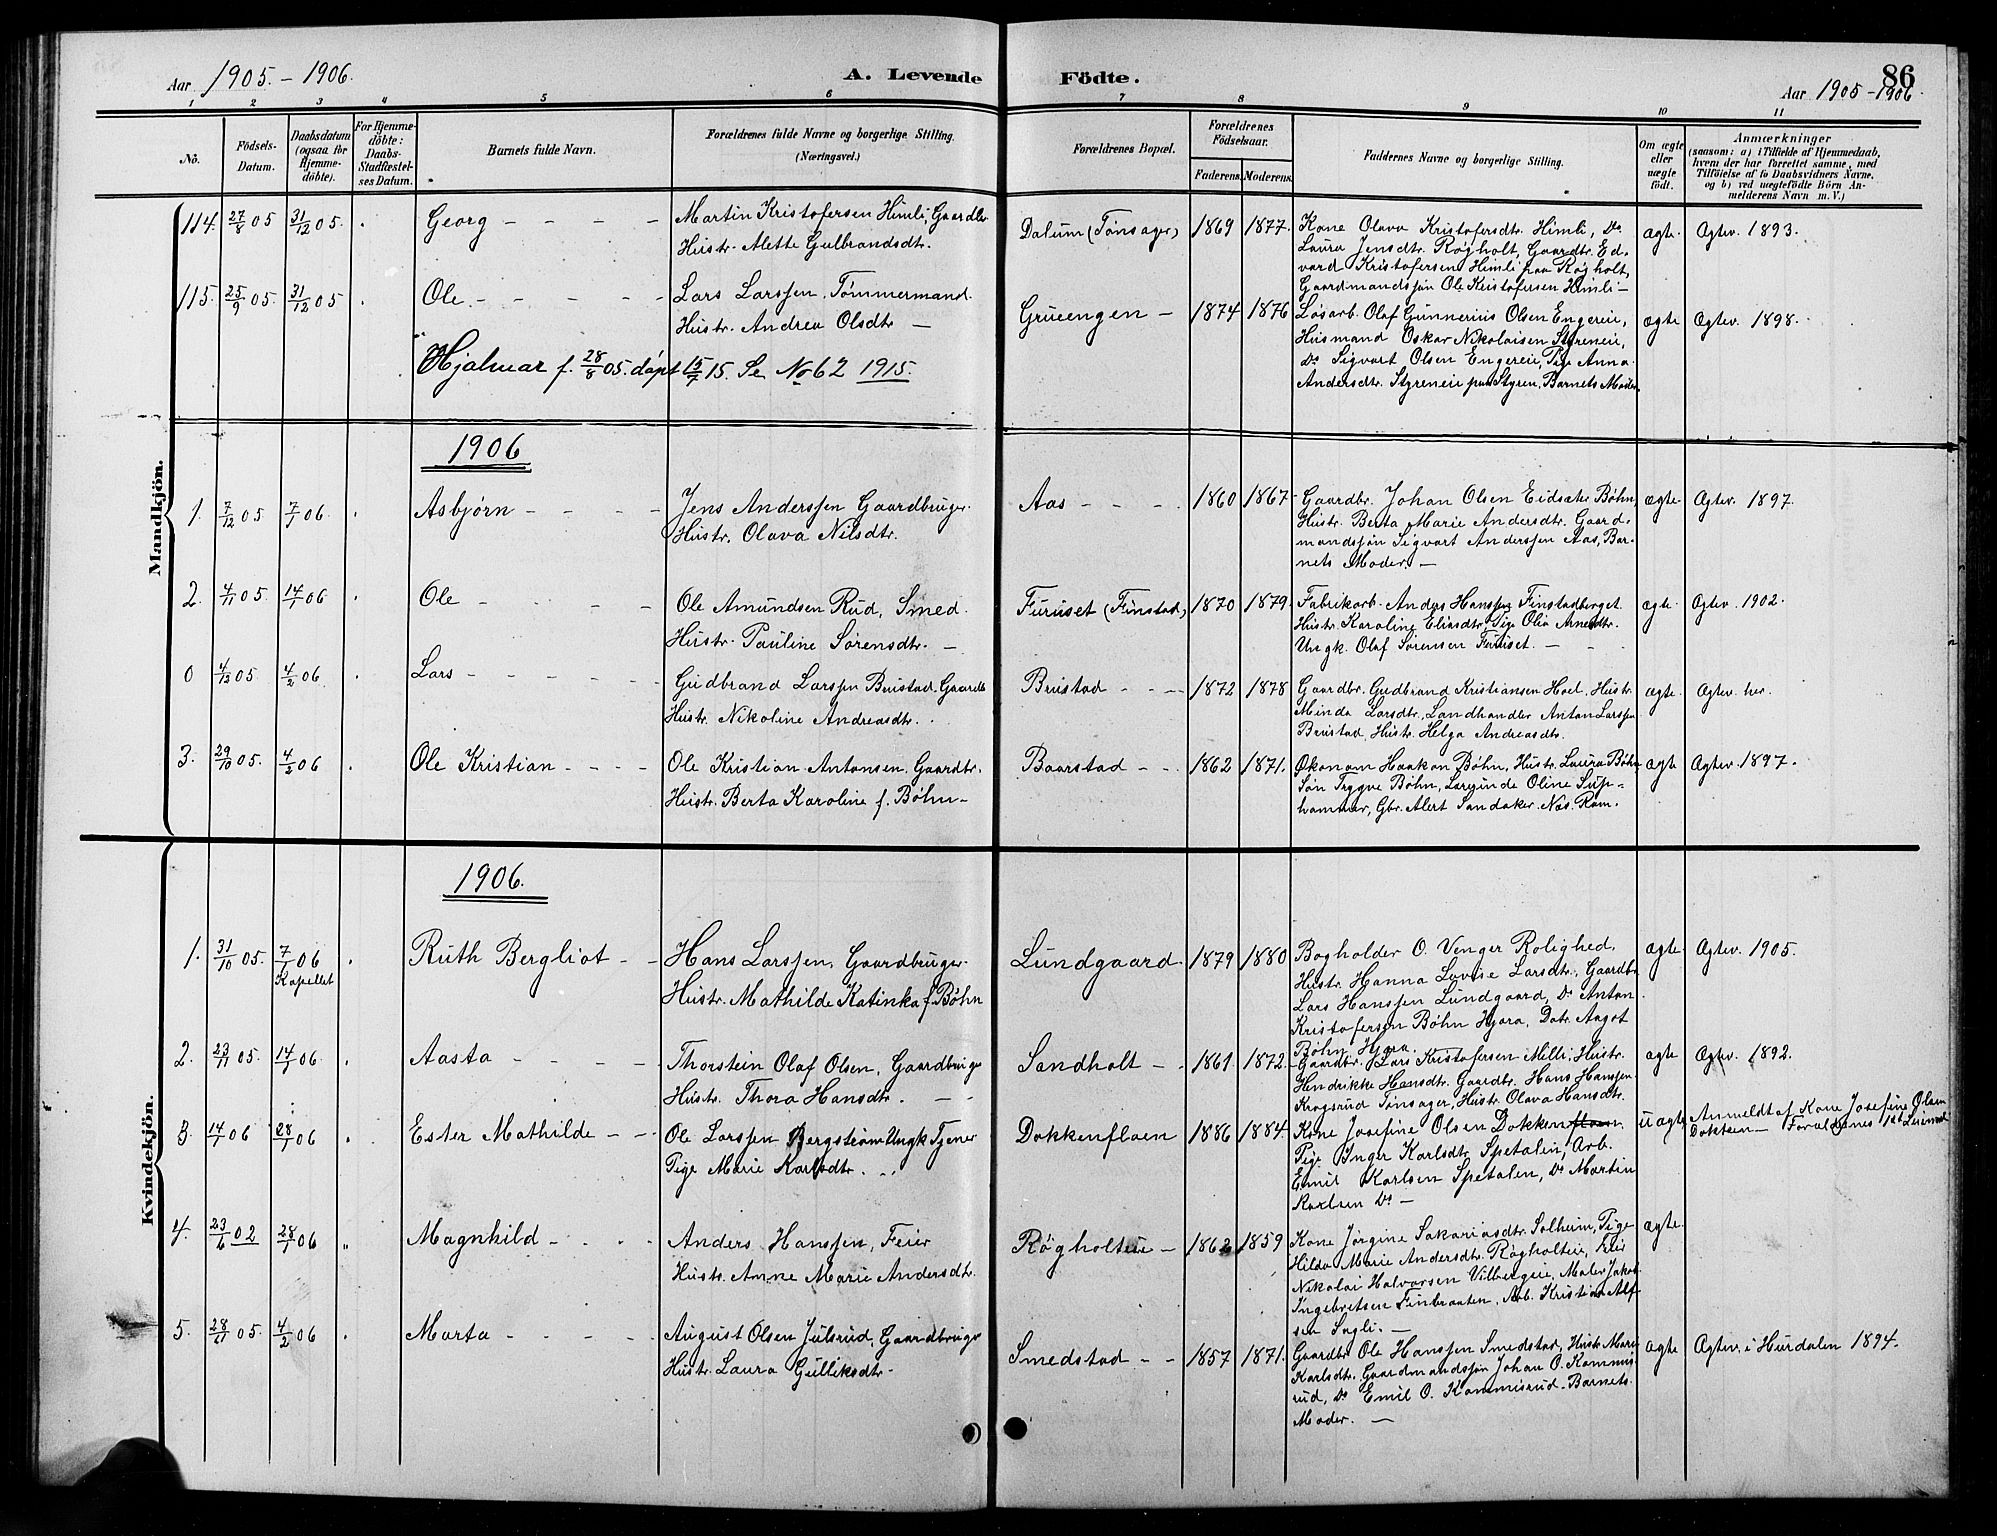 Aar 1905.-1906.
A. Levende Födte.
86
Aar 1905-1906.
1 2 3 4 5 6 7 8 9 10 11
No.
Födsels-Datum.
Daabsdatum (ogsaa for Hjemme-döbte).
For Hjemme-döbte: Daabs-Stadfæstel-ses Datum.
Barnets fulde Navn.
Forældrenes fulde Navne og borgerlige Stilling.
(Næringsvei.)
Forældrenes Bopæl.
Forældrenes Födselsaar.
Faderens. Moderens.
Faddernes Navne og borgerlige Stilling.
Om ægte eller uægte født.
Anmærkninger
(saasom: a) i Tilfælde af Hjemmedaab,
hvem der har forrettet samme, med
Tilföielse af to Daabsvidners Navne,
og b) ved uægtefödte Börn An-
melderens Navn m. V.)
Mandkjön.
114. 27/8 05 31/12 05. Georg - - - -
Martin Kristofersen Himli, Gaardbr.
Hustr. Alette Gulbrandsdtr.
Dalum (Tönsager) 1869 1877.
Kone Olava Kristofersdtr. Himli, Do
Laura Jensdtr. Røgholt, Gaardtr. Ed-
vard Kristofersen Himli paa Røgholt,
Gaardmandssøn Ole Kristofersen Himli -
ægte. Agtev. 1893.
115. 25/9 05. 31/12 05 Ole. - - - -
Lars Larssen, Tømmermand.
Hustr. Andrea Olsdtr -
Grueengen - 1874 1876
Løsarb. Olaf Gunnerius Olsen Engereie,
Husmand Oskar Nikolaisen Styreneie,
Do Sigvart Olsen Engereie, Pige Anna
Andersdtr. Styreneie paa Styren, Barnets Moder.
ægte Agtev. 1898.
Hjalmar f. 28/8 05. døpt 15/7 15. Se No 62 1915.
1906
1. 7/12 05 7/1 06. Asbjørn - - - -
Jens Anderssen Gaardbruger.
Hustr. Olava Nilsdtr.
Aas - - - - 1860 1867
Gaardbr. Johan Olsen Eidsætr Bøhn,
Hustr. Berta Marie Andersdtr. Gaard-
mandssøn Sigvart Anderssen Aas, Bar-
nets Moder. -
ægte. Agtev. 1897.
2. 4/11 05. 14/1 06 Ole - - - -
Ole Amundsen Rud, Smed.
Hustr. Pauline Sørensdtr. -
Furuset (Finstad) 1870 1879.
Fabrikarb. Anders Hanssen Finstadberget
Hustr. Karoline Eliasdtr, Pige Olia Arnesdtr.
Ungk. Olaf Sørensen Furuset. -
ægte. Agtev. 1902.
0 4/12 05 4/2 06. Lars - - - - -
Gudbrand Larssen Brustad, Gaardb
Hustr. Nikoline Andreasdtr.
Brustad - - - 1872 1878
Gaardbr. Gudbrand Kristiansen Hoel, Hustr.
Minda Larsdtr, Landhandler Anton Larssen
Brustad, Hustr. Helga Andreasdtr.
ægte. Agtev. her.
3. 29/10 05. 4/2 06 Ole Kristian - - - -
Ole Kristian Antonsen, Gaardbr.
Hustr. Berta Karoline f. Bøhn -
Baarstad - - 1862 1871.
Økonom Haakon Bøhn, Hustr. Laura Bøhn
Søn Trygve Bøhn, Lærerinde Oline Sup-
hammer, Gbr. Alert Sandaker. Næs. Rom.
ægte Agtev. 1897.
Kvindekjön.
1906.
1. 31/10 05. 7/1 06 Kapellet Ruth Bergliot - -
Hans Larssen, Gaardbruger
Hustr. Mathilde Katinka f. Bøhn
Lundgaard. 1879 1880
Bogholder O. Venger Rolighed,
Hustr. Hanna Lovise Larsdtr, Gaardbr.
Lars Hanssen Lundgaard, Do Anton
Kristofersen Bøhn Hjera, Datr. Aagot
Bøhn Hjera.
ægte Agtev. 1905.
2. 23/11 05. 14/1 06. Aasta - - - -
Thorstein Olaf Olsen, Gaardbruger
Hustr. Thora Hansdtr. - -
Sandholt - - 1861. 1872.
Gaardbr. Lars Kristofersen Milli, Hustr.
Hendrikke Hansdtr. Gaardbr. Hans Hanssen
Krogsrud Tønsager, Hustr. Olava Hansdtr.
ægte Agtev. 1892.
3. 14/1 06 28/1 06 Ester Mathilde - -
Ole Larssen Bergstrøm Ungk. Tjener
Pige Marie Karlsdtr.
Dokkenfloen 1886 1884.
Kone Josefine Olsen Dokken
Pige Inger Karlsdtr Spetalen, Arb.
Emil Karlsen Spetalen, Do Martin
Karlsen Do -
uægte Anmeldt af Kone Josefine Olsen
Dokken - Forældrenes 1ste Leiermaal
4. 23/6 02 28/1 06 Magnhild - - - -
Anders Hanssen, Feier
Hustr. Anne Marie Andersdtr.
Røgholteie - 1862 1859
Kone Jørgine Sakariasdtr. Solheim, Pige
Hilda Marie Andersdtr. Røgholteie, Feier
Nikolai Halvorsen Vilbergeie, Maler Jakob
Ingebretsen Finbraaten, Arb. Kristian Alf
sen Sagli. -
ægte.
5. 28/11 05. 4/2 06 Marta - - - -
August Olsen Julsrud, Gaardbruger
Hustr. Laura Gulliksdtr -
Smedstad - - 1857 1871.
Gaardbr. Ole Hanssen Smedstad, Hustr. Marie
Karlsdtr. Gaardmandssøn Johan O. Kommis-
rud, Do Emil O. Kommisrud. Barnets
Moder. -
ægte Agtev. i Hurdalen 1894.